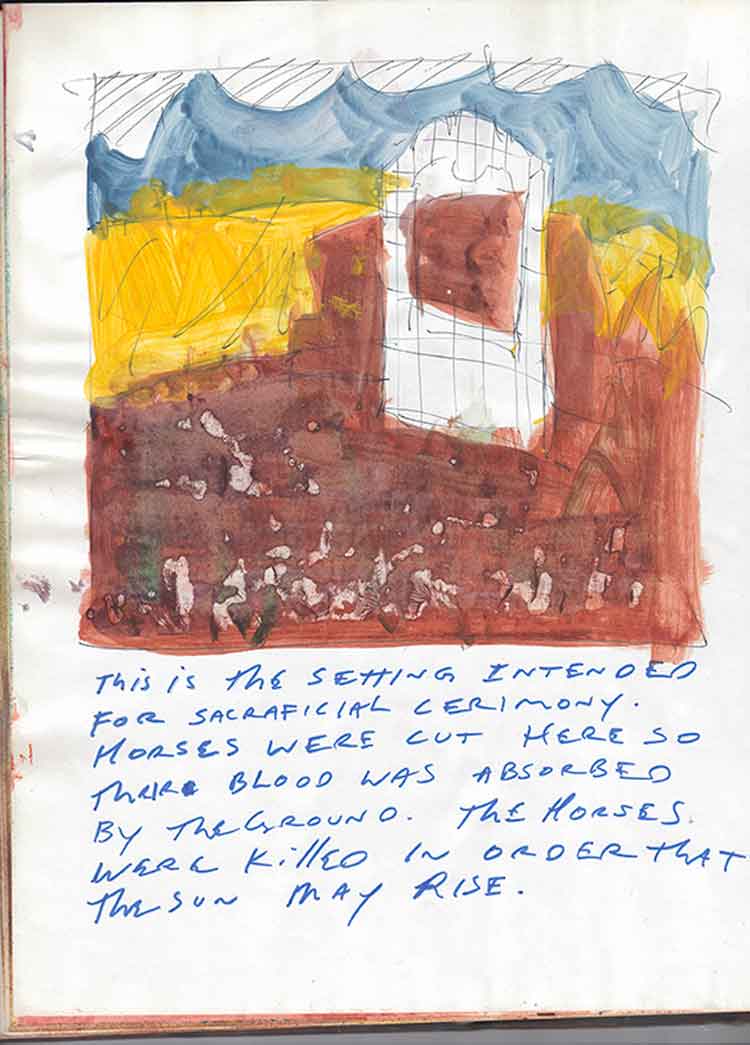 This is the SETTING INTENDED
FOR SACRAFICIAL CERIMONY.
HORSES WERE CUT HERE SO
THEIR BLOOD WAS ABSORBED
BY THE GROUND. THE HORSES
WERE KILLED IN ORDER THAT
THE SUN MAY RISE.